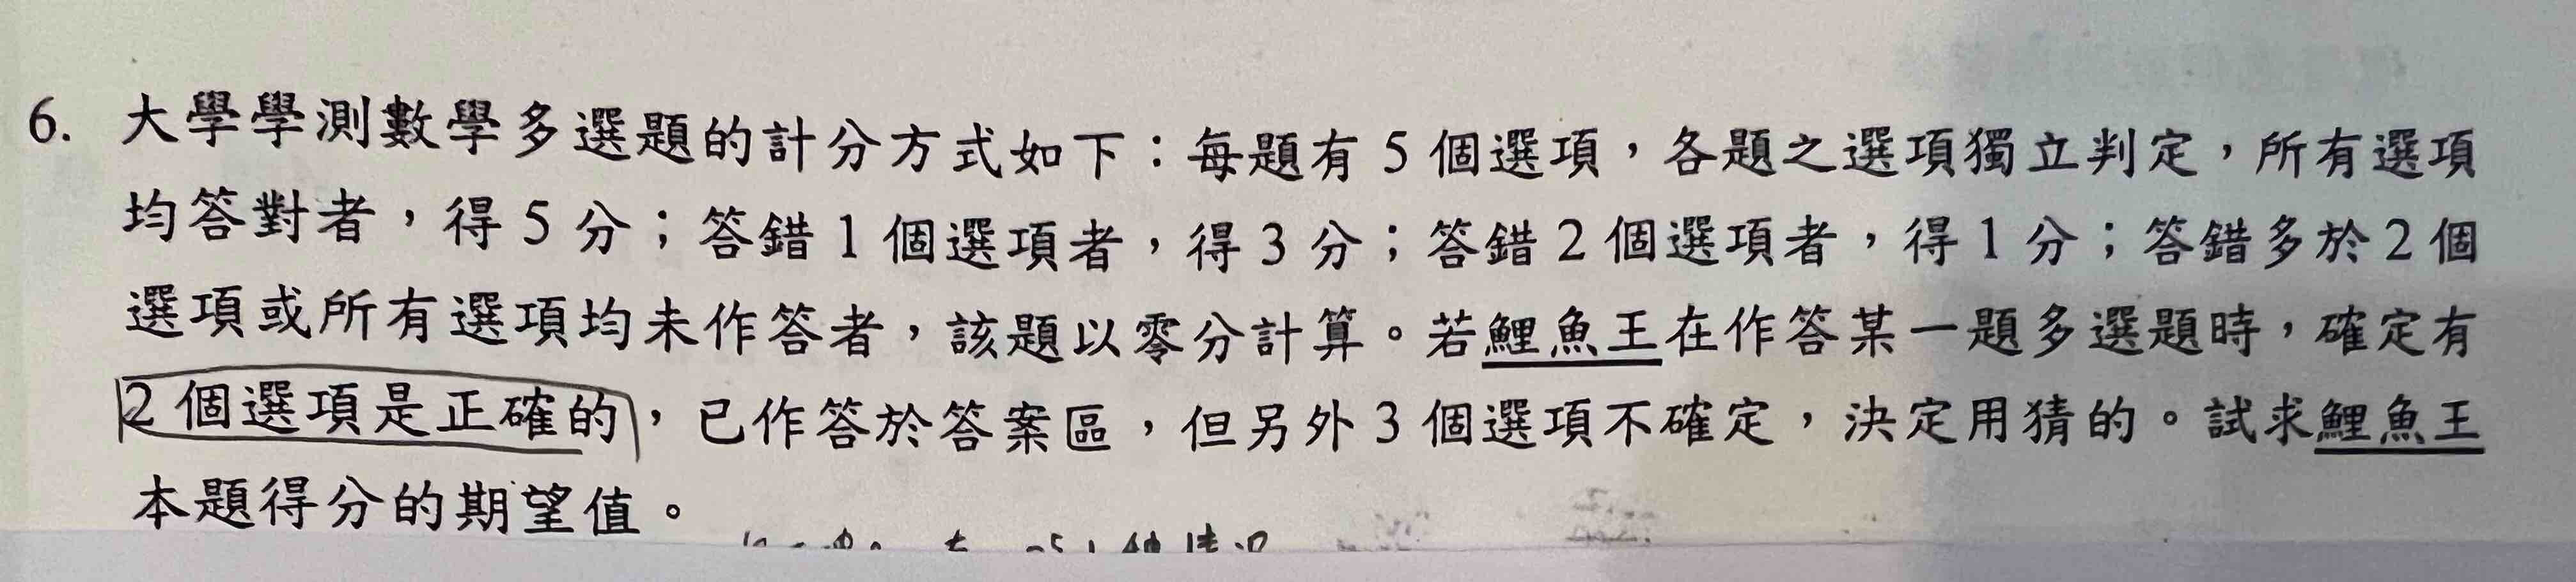 6. 大學學測數學多選題的計分方式如下：每題有 5 個選項，各題之選項獨立判定，所有選項
均答對者，得 5 分；答錯 1 個選項者，得 3 分；答錯 2 個選項者，得 1 分；答錯多於 2 個
選項或所有選項均未作答者，該題以零分計算。若鯉魚王在作答某一題多選題時，確定有
2 個選項是正確的，已作答於答案區，但另外 3 個選項不確定，決定用猜的。試求鯉魚王
本題得分的期望值。